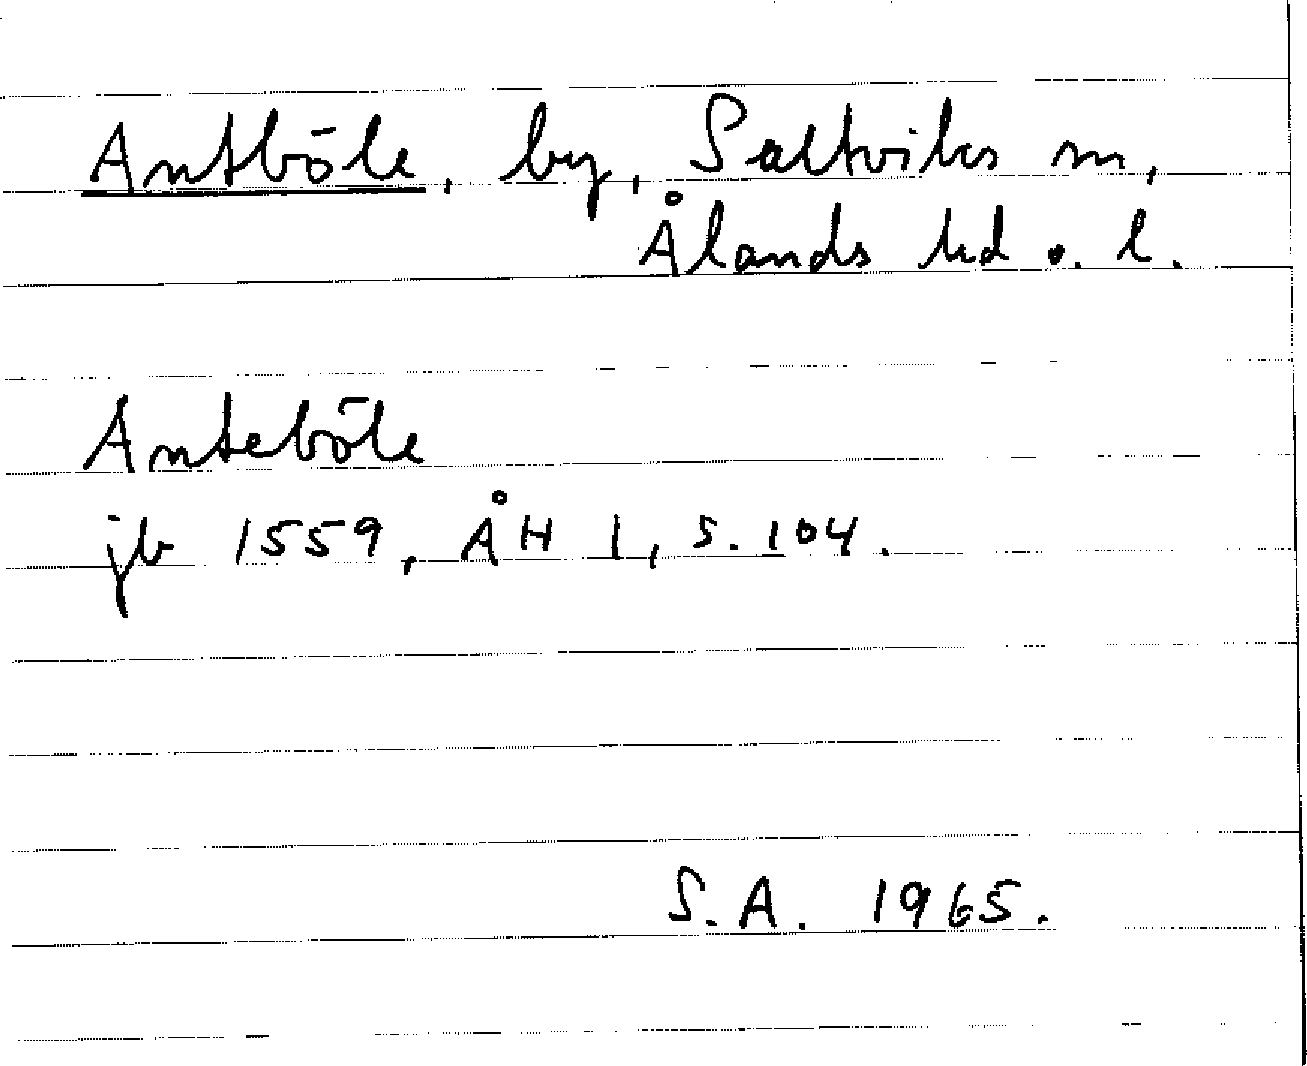 Antböle, by, Saltviks sn,
Ålands hd o. l.
Anteböle
jb 1559, ÅH 1, s. 104.
S.A. 1965.